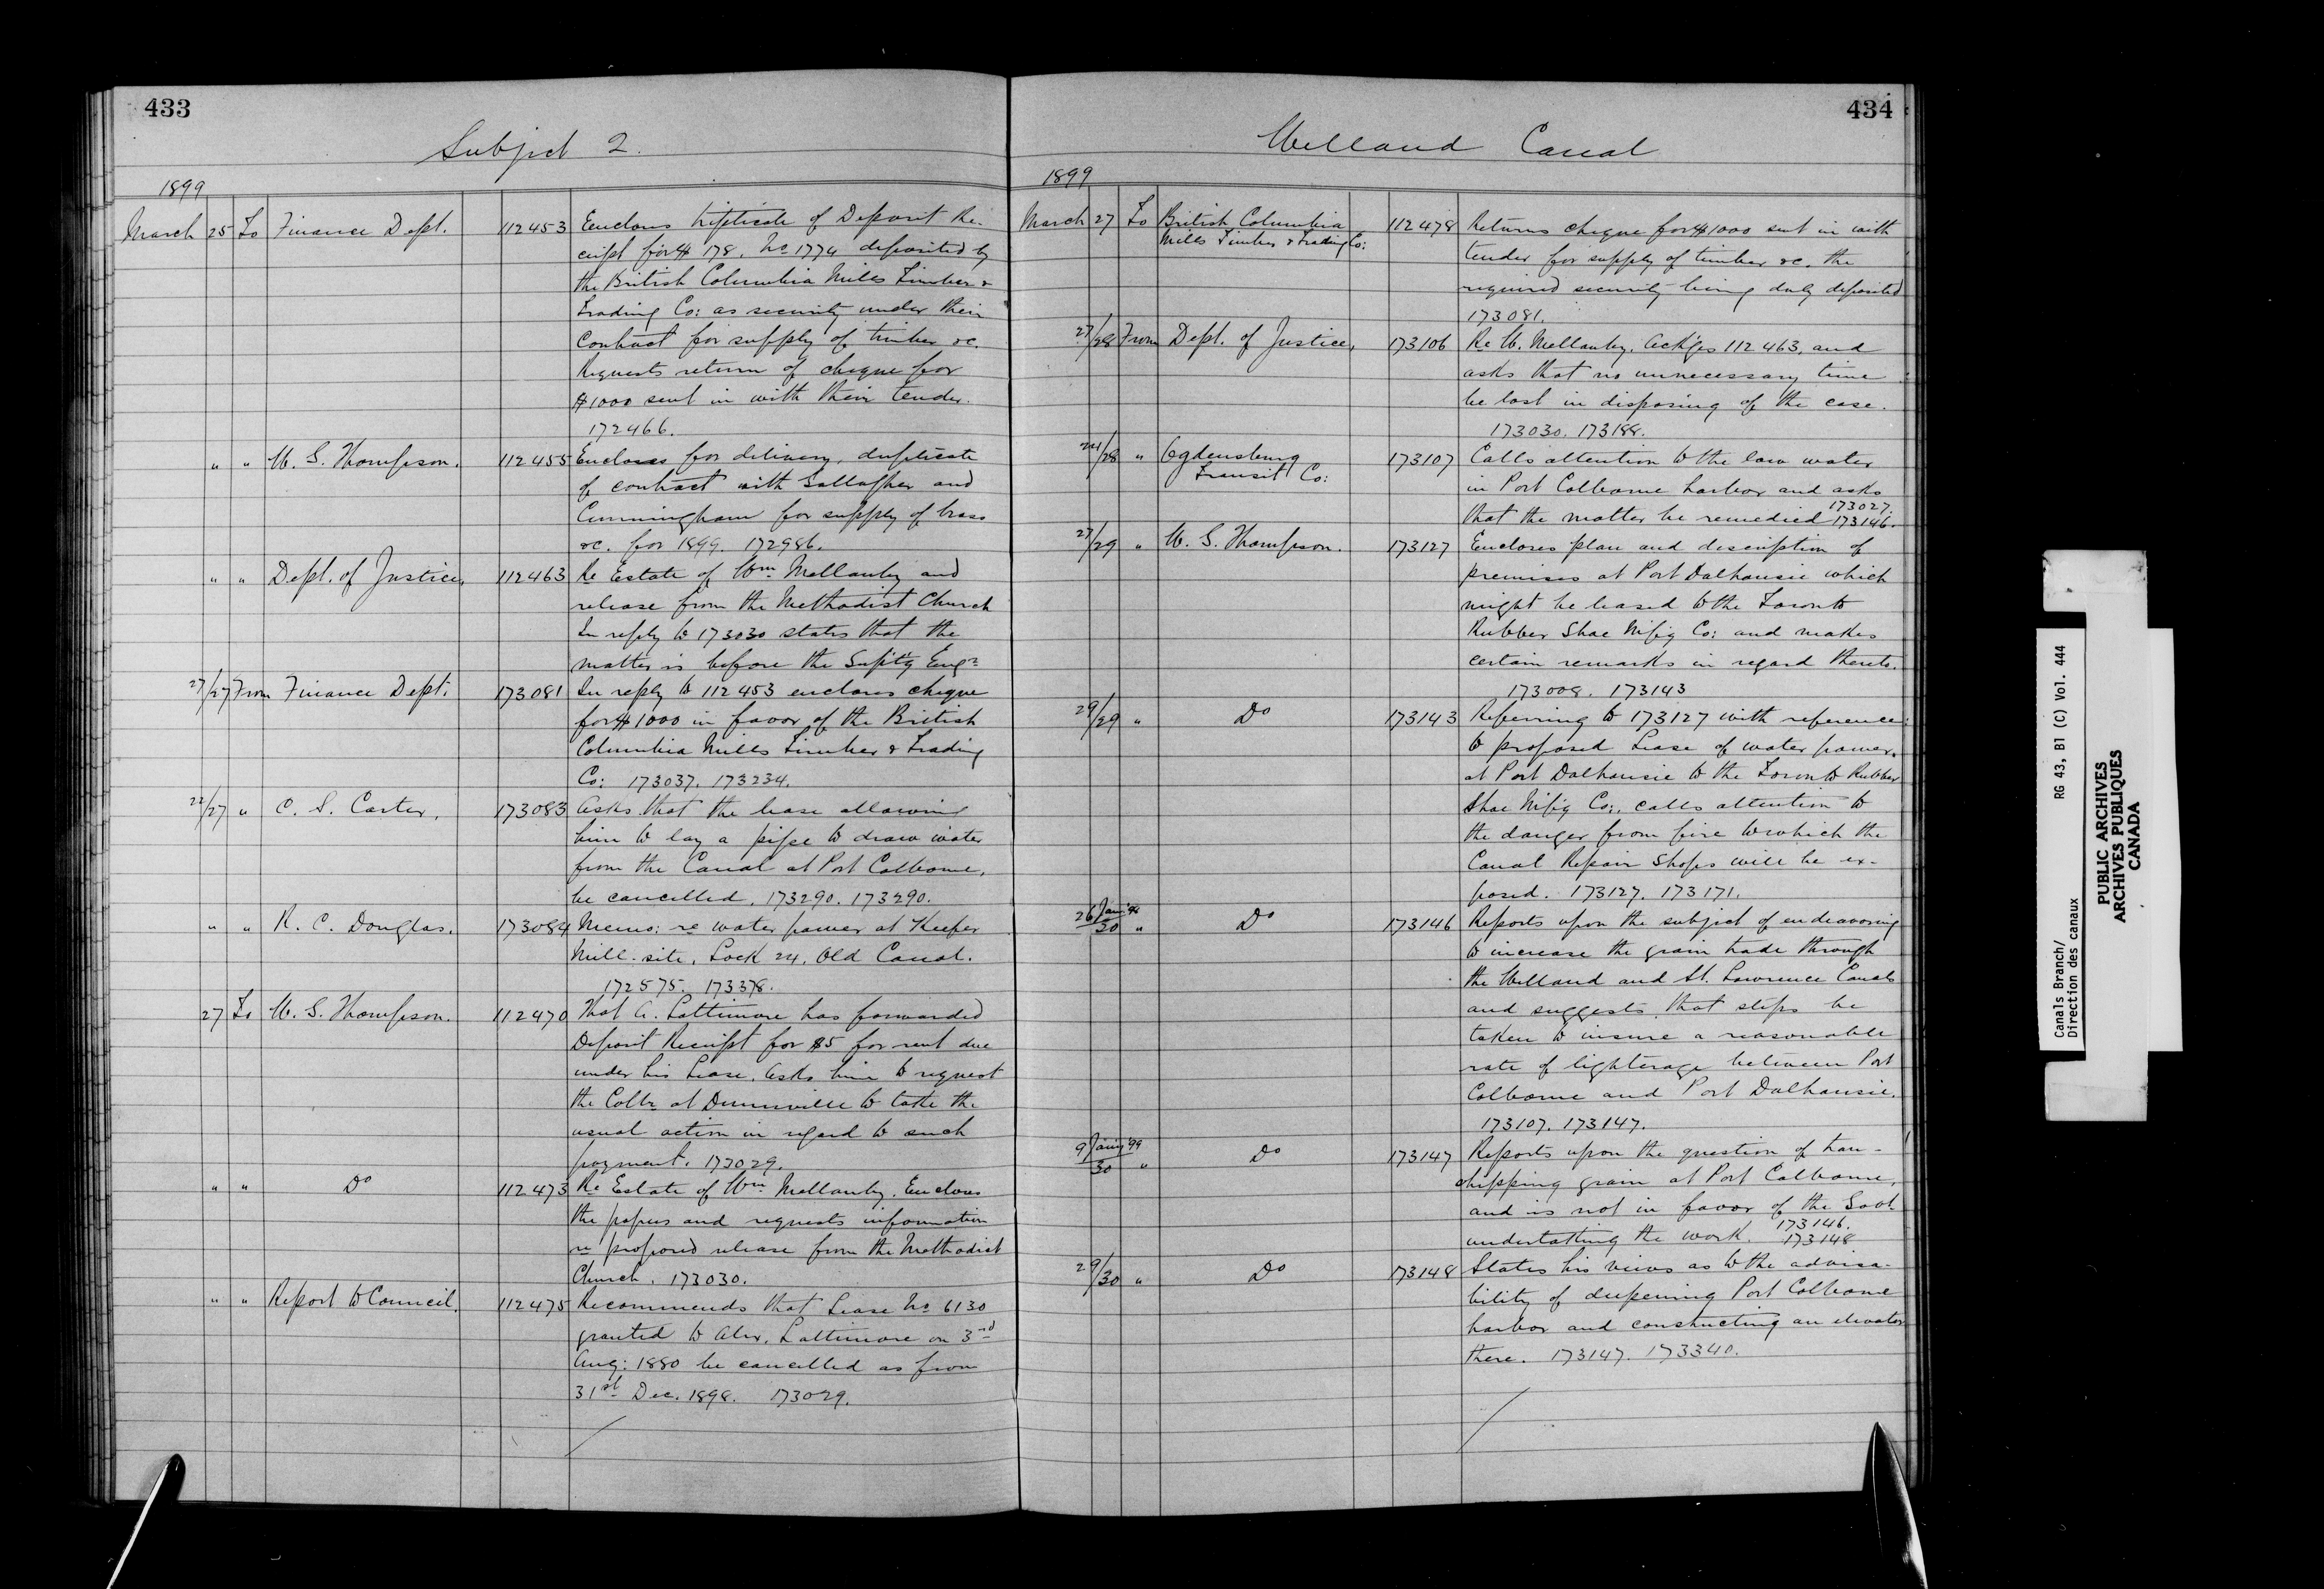 433
Subject 2.
1899
March 25 To Finance Dept. 112453 Encloses triplicate of Deposit Re-
ceipt for $178. No 1774 deposited by
the British Columbia Mills Timber &
Trading Co: as security under their
Contract for supply of timber &c.
Requests return of cheque for
$1000 sent in with their tender.
172466.
" " W. G. Thompson. 112455 Encloses for delivery, duplicate
of contract with Gallagher and
Cunningham for supply of brass
&c. for 1899. 172986.
" " Dept. of Justice, 112463 Re Estate of Wm Mellanby and
release from the Methodist Church
In reply to 173030 states that the
matter is before the Supt'g Engr
27/27 From Finance Dept. 173081 In reply to 112453 encloses cheque
for $1000 in favor of the British
Columbia Mills Timber & Trading
Co: 173037. 173234.
22/27 " C. S. Carter, 173083 Asks that the lease allowing
him to lay a pipe to draw water
from the Canal at Port Colborne,
be cancelled. 173290. 173290.
" " R. C. Douglas. 173084 Memo: re water power at Keefer
Mill-site, Lock 24, Old Canal.
172575. 173378.
27 To W. G. Thompson. 112470 That A. Lattimore has forwarded
Deposit Receipt for $5 for rent due
under his Lease. Asks him to request
the Collr at Dunnville to take the
usual action in regard to such
payment. 173029.
" " Do 112473 Re Estate of Wm Mellanby. Encloses
the papers and requests information
re proposed release from the Methodist
Church. 173030.
" " Report to Council. 112475 Recommends that Lease No 6130
granted to Alex. Lattimore on 3rd
Aug: 1880 be cancelled as from
31st Dec. 1898. 173029.
434
Welland Canal
1899
March 27 To British Columbia 112478 Returns cheque for $1000 sent in with
Mills Timber & Trading Co: tender for supply of timber &c. the
required security being duly deposited
173081.
27/28 From Dept. of Justice, 173106 Re W. Mellanby. Ack'ges 112463, and
asks that no unnecessary time
be lost in disposing of the case.
173030. 173188.
24/28 " Ogdensburg 173107 Calls attention to the low water
Transit Co: in Port Colborne harbor and asks
173027.
that the matter be remedied 173146.
27/29 " W. G. Thompson. 173127 Encloses plan and description of
premises at Port Dalhousie which
might be leased to the Toronto
Rubber Shoe Mf'g Co: and makes
certain remarks in regard thereto.
173008. 173143
29/29 " Do 173143 Referring to 173127 with reference
to proposed Lease of water power,
at Port Dalhousie to the Toronto Rubber
Shoe Mf'g Co:, calls attention to
the danger from fire to which the
Canal Repair Shops will be ex-
posed. 173127. 173171.
26 Jan'y /30 " Do 173146 Reports upon the subject of endeavoring
to increase the grain trade through
the Welland and St. Lawrence Canals
and suggests that steps be
taken to insure a reasonable
rate of lighterage between Port
Colborne and Port Dalhousie.
173107. 173147.
9 Jan'y '99/30 " Do 173147 Reports upon the question of tran-
shipping grain at Port Colborne,
and is not in favor of the Govt
173146.
undertaking the work. 173148
29/30 " Do 173148 States his views as to the advisa-
bility of deepening Port Colborne
harbor and constructing an elevator
there. 173147. 173340.
Canals Branch/ RG 43, B1 (C) Vol. 444
Direction des canaux
PUBLIC ARCHIVES
ARCHIVES PUBLIQUES
CANADA